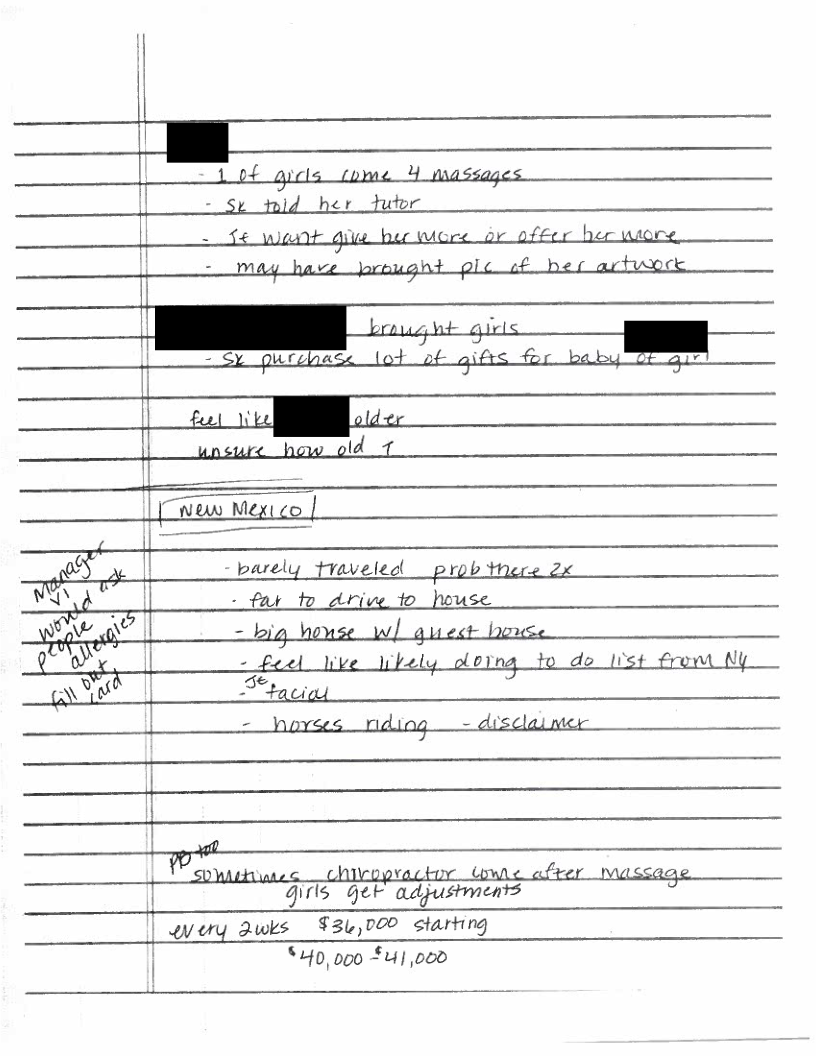 - 1 of girls come 4 massages
- SK told her tutor
- JE want give her more or offer her more
- may have brought pic of her artwork
brought girls
- SK purchase lot of gifts for baby of girl
feel like older
unsure how old ↑
New Mexico
- barely traveled prob there 2x
- far to drive to house
- big house w/ guest house
- feel like likely doing to do list from NY
- JE facial
- horses riding - disclaimer
Manager
VI
would ask
people
allergies
fill out
card
PB too
sometimes chiropractor come after massage
girls get adjustments
every 2wks $36,000 starting
$40,000 - $41,000